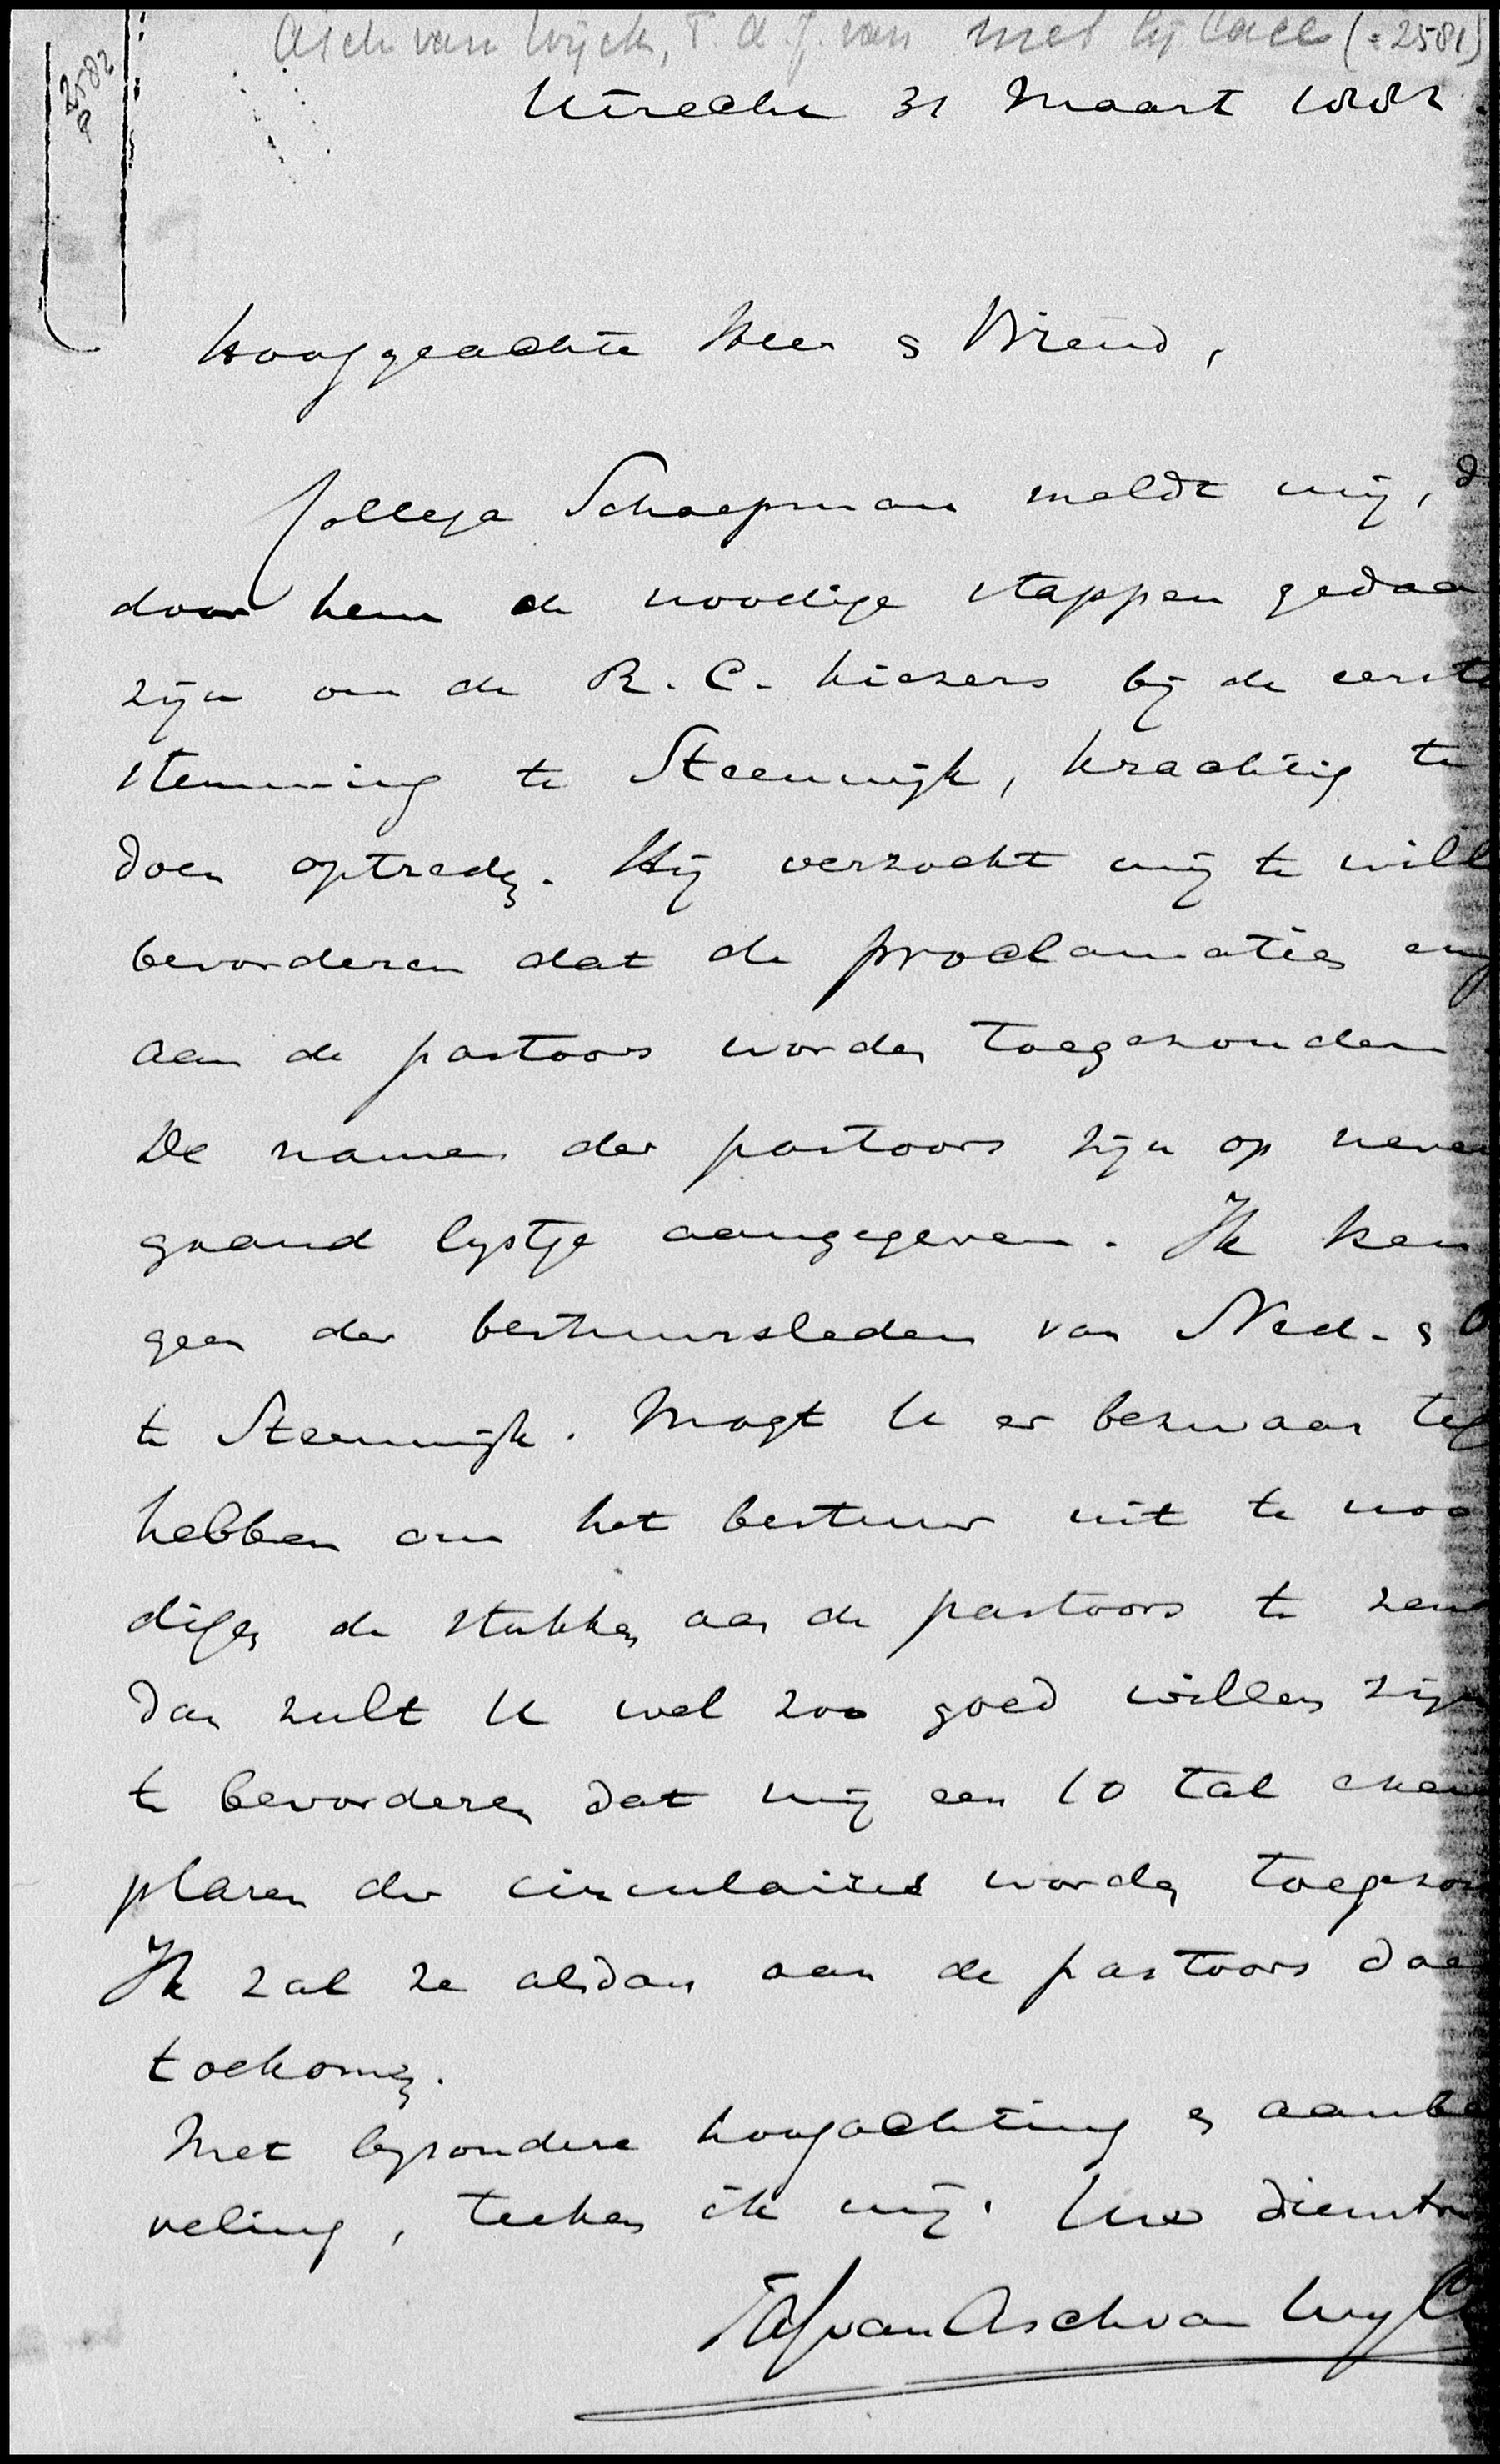 Asch van Wijck, T. A. J. van met bijlage (=2581)
2582
Utrecht 31 Maart 1882.
Hooggeachte Heer & Vriend,
Collega Schaepman meldt mij, d
door hem de noodige stappen gedaa
zijn om de R. C. kiezers bij de eerste
stemming te Steenwijk, krachtig te
doen optreden. Hij verzocht mij te will
bevorderen dat de proclamaties enz
aan de pastoors worden toegezonden
De namen der pastoors zijn op neven
gaand lijstje aangegeven. Ik ken
geen der bestuursleden van Ned. & O
te Steenwijk. Mogt U er bezwaar teg
hebben om het bestuur uit te noo
digen de stukken aan de pastoors te zen
dan zult U wel zoo goed willen zijn
te bevorderen dat mij een 10 tal exem
plaren der circulaires worden toegezon
Ik zal ze alsdan aan de pastoors doen
toekomen.
Met bijzondere hoogachting & aanbe
veling, teeken ik mij. Uw dienstw
TAJvanAschvanWijck